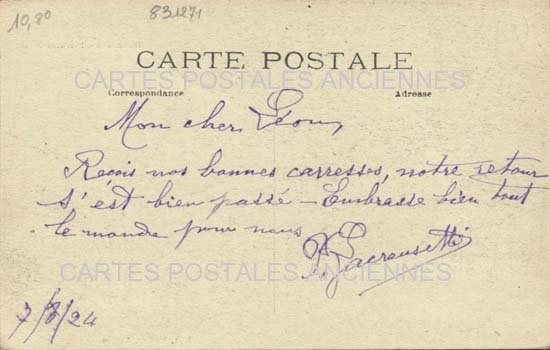 10,80
831271
CARTE POSTALE
CARTES POSTALES ANCIENNES
Correspondance Adresse
Mon cher Léon,
Reçois nos bonnes carresses, notre retour
s'est bien passé - Embrasse bien tout
le monde pour nous
CARTES POSTALES ANCIENNES
7/8/24